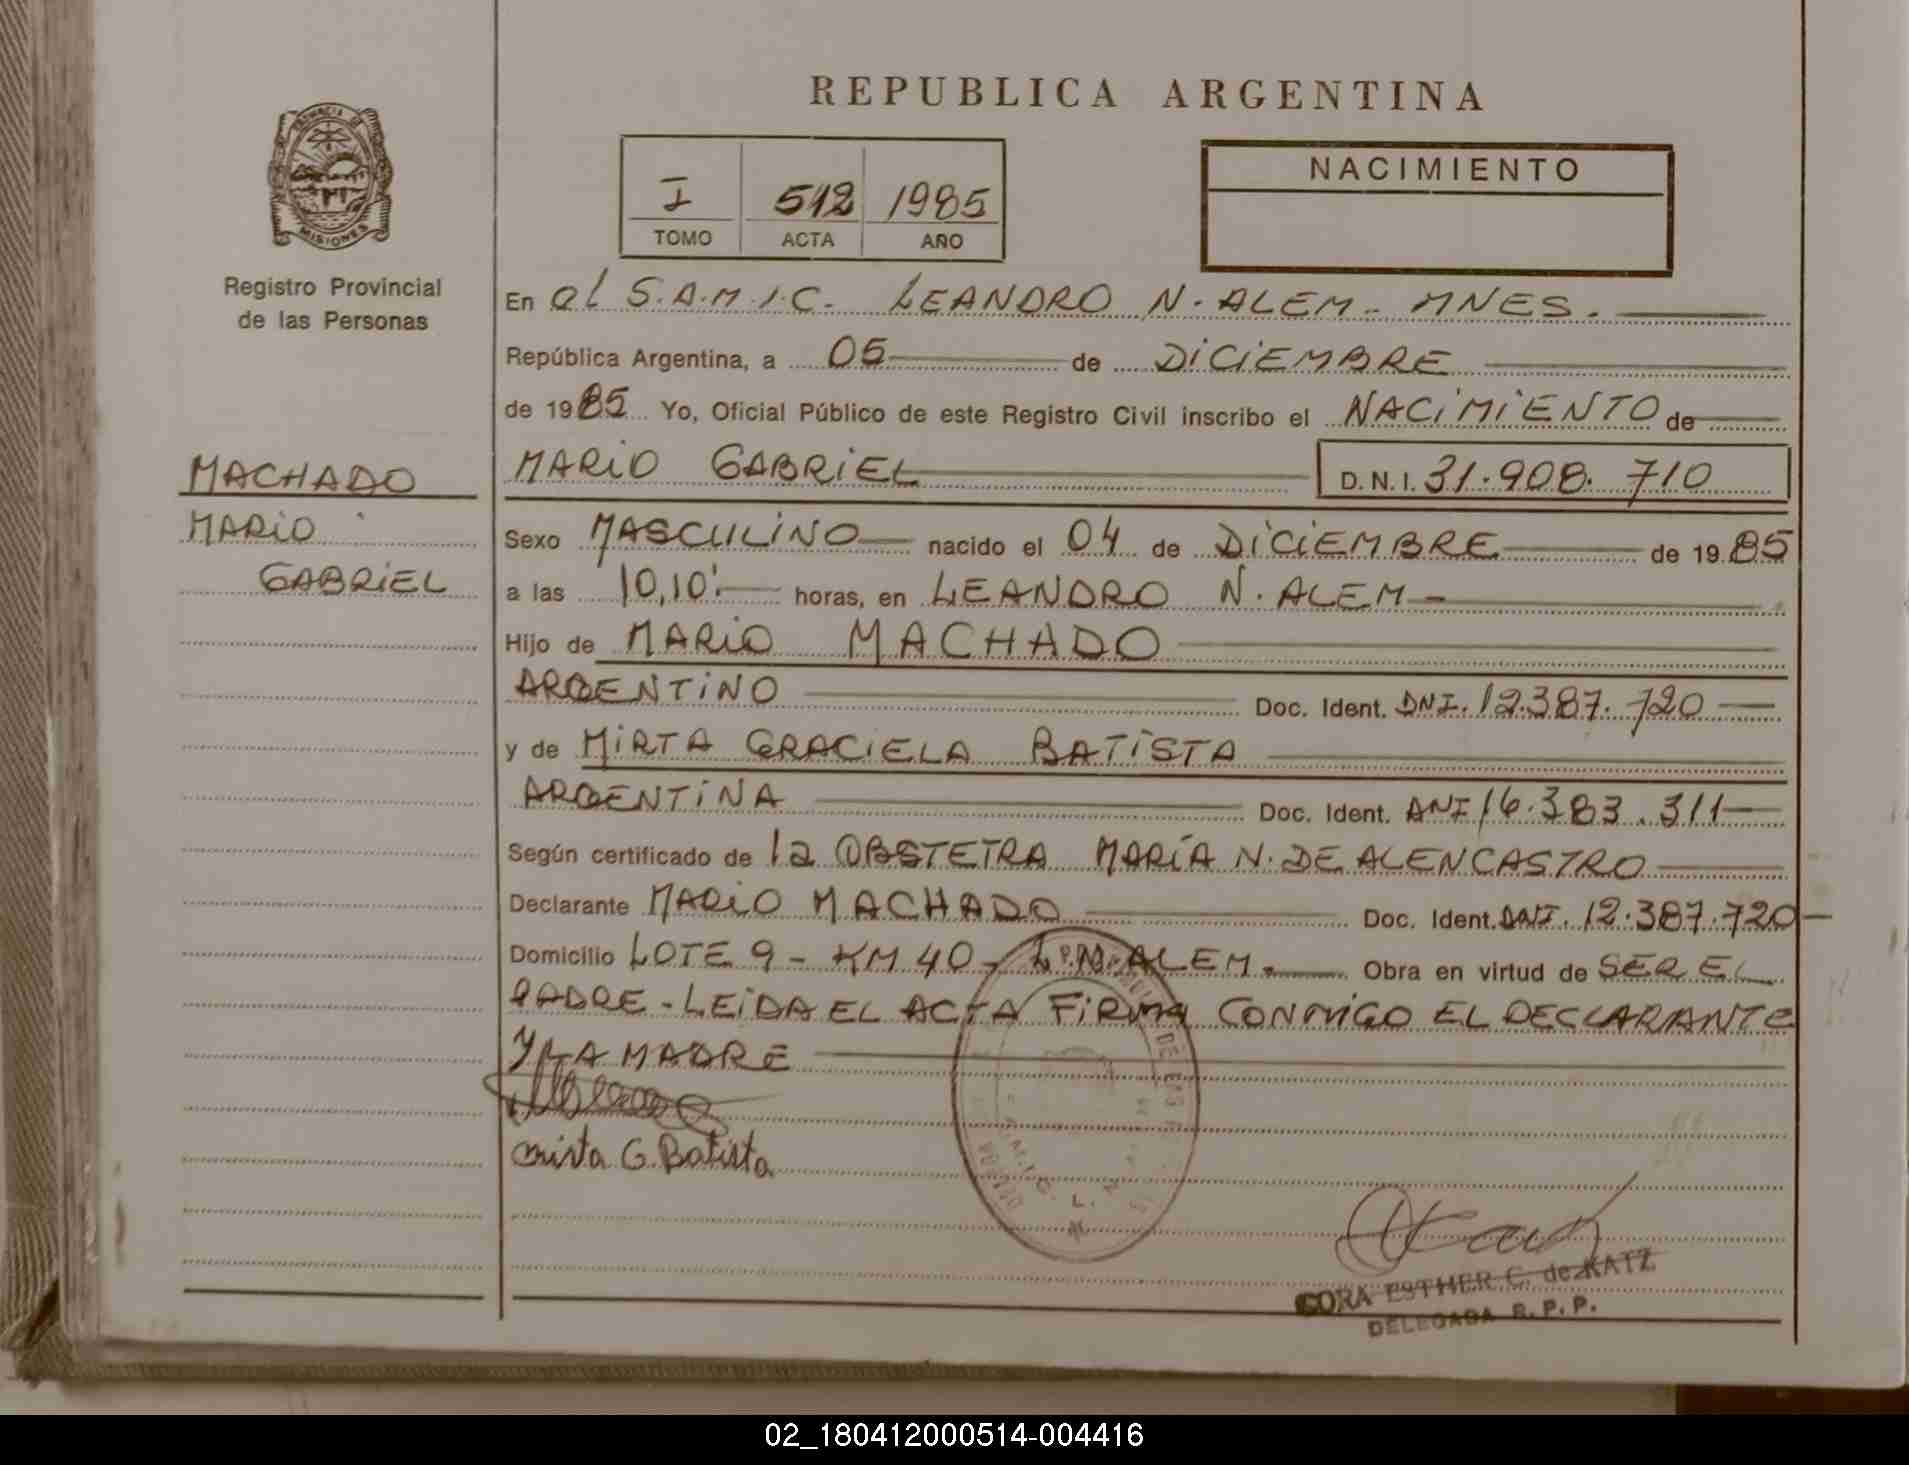 REPUBLICA ARGENTINA
PROVINCIA DE
MISIONES
Registro Provincial
de las Personas
I 512 1985
TOMO ACTA AÑO
NACIMIENTO
En el S.A.M.I.C. LEANDRO N. ALEM - MNES.
República Argentina, a 05 de DICIEMBRE
de 1985 Yo, Oficial Público de este Registro Civil inscribo el NACIMIENTO de
MACHADO
MARIO
GABRIEL
MARIO GABRIEL D.N.I. 31.908.710
Sexo MASCULINO nacido el 04 de DICIEMBRE de 1985
a las 10,10' horas, en LEANDRO N. ALEM -
Hijo de MARIO MACHADO
ARGENTINO Doc. Ident. DNI. 12.387.720
y de MIRTA GRACIELA BATISTA
ARGENTINA Doc. Ident. DNI 16.383.311
Según certificado de la OBSTETRA MARÍA N. DE ALENCASTRO
Declarante MARIO MACHADO Doc. Ident. DNI. 12.387.720
Domicilio LOTE 9 - KM 40 - L.N. ALEM. Obra en virtud de SER EL
PADRE - LEIDA EL ACTA FIRMA CONMIGO EL DECLARANTE
Y LA MADRE
mirta G. Batista
CORA ESTHER C. de KATZ
DELEGADA R.P.P.
02_180412000514-004416